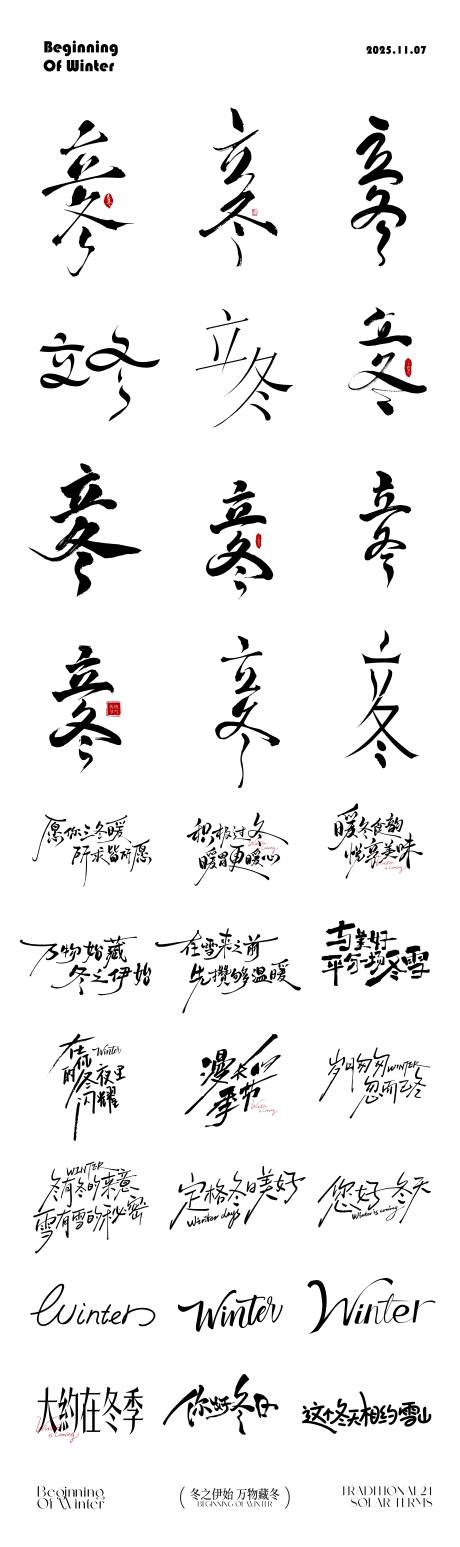 Beginning
Of Winter
2025.11.07
立冬
立冬
立冬
立冬
立冬
立冬
立冬
立冬
立冬
立冬
立冬
立冬
愿你三冬暖
所求皆所愿
积极过冬
暖胃更暖心
暖冬食韵
悦享美味
万物始藏
冬之伊始
在雪来之前
先攒够温暖
与美好
平分一场冬雪
在你的冬夜里闪耀
Winter
漫长的
季节
岁月匆匆
WINTER
忽而已冬
WINTER
冬有冬的来意
雪有雪的秘密
定格冬日美好
Winter days
您好冬天
Winter is coming
Winter
Winter
Winter
大約在冬季
你好冬日
这个冬天相约雪山
Beginning
Of Winter
(冬之伊始 万物藏冬)
BEGINNING OF WINTER
TRADITIONAL 24
SOLAR TERMS